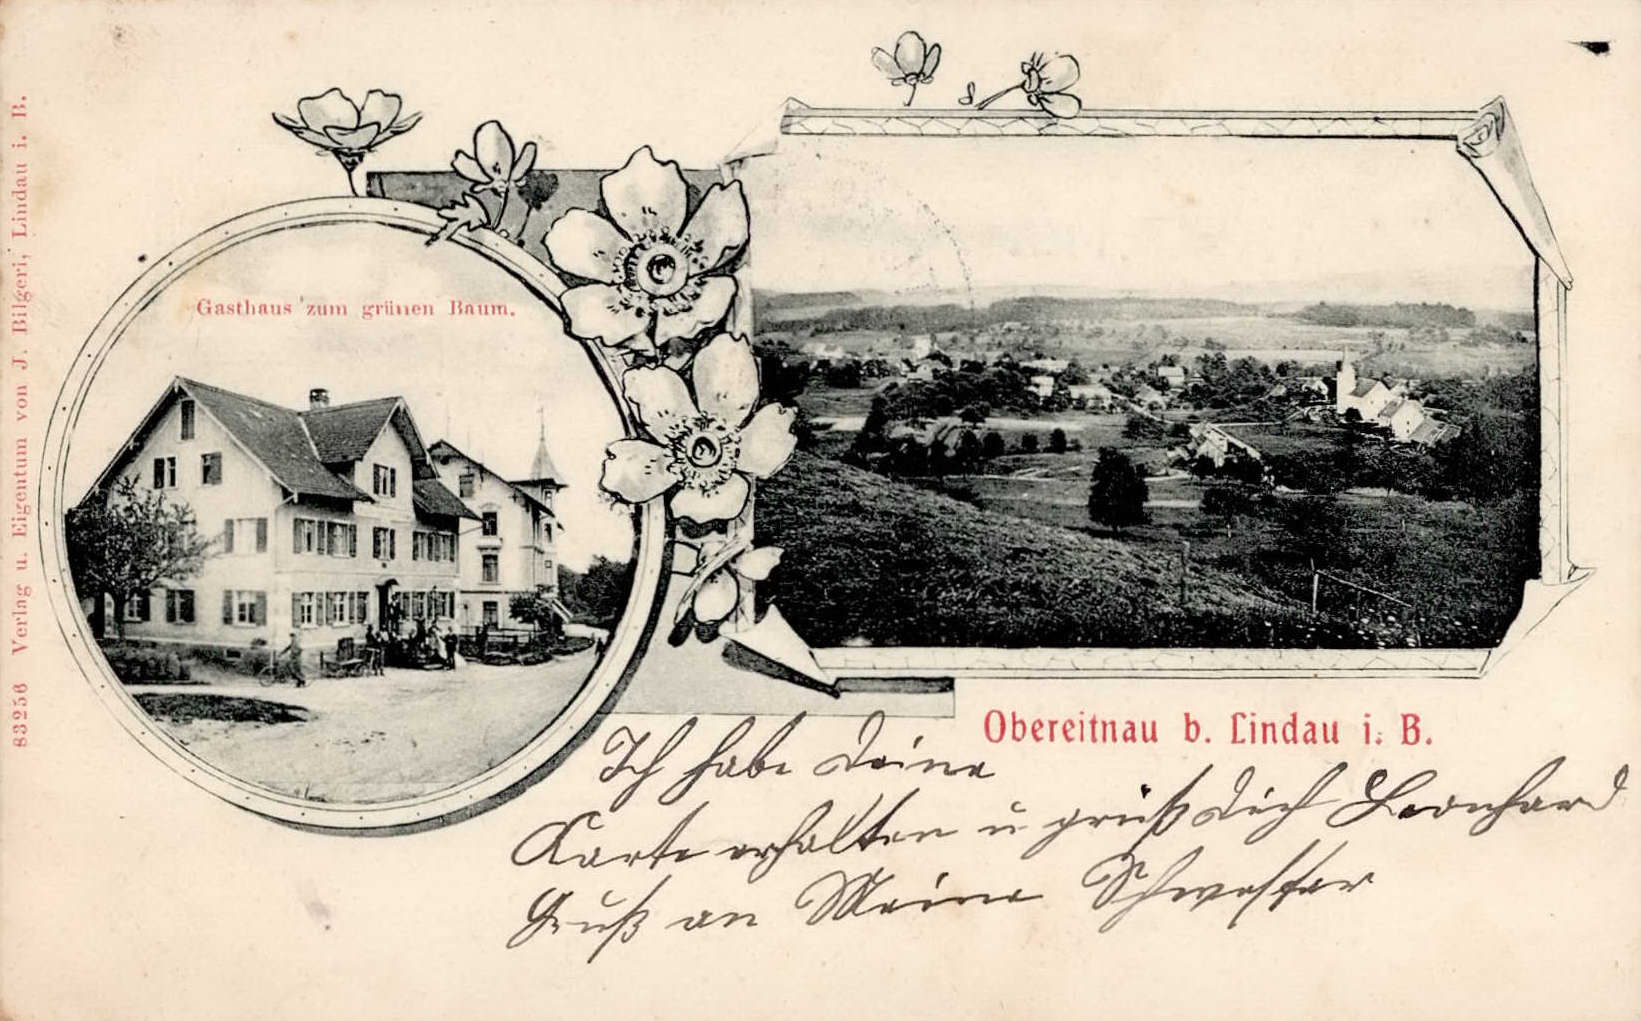 83256 Verlag u. Eigentum von J. Bilgeri, Lindau i. B.
Gasthaus zum grünen Baum.
Obereitnau b. Lindau i. B.
Ich habe Deine
Karte erhalten u grüß Dich Leonhard
Gruß an Meine Schwester